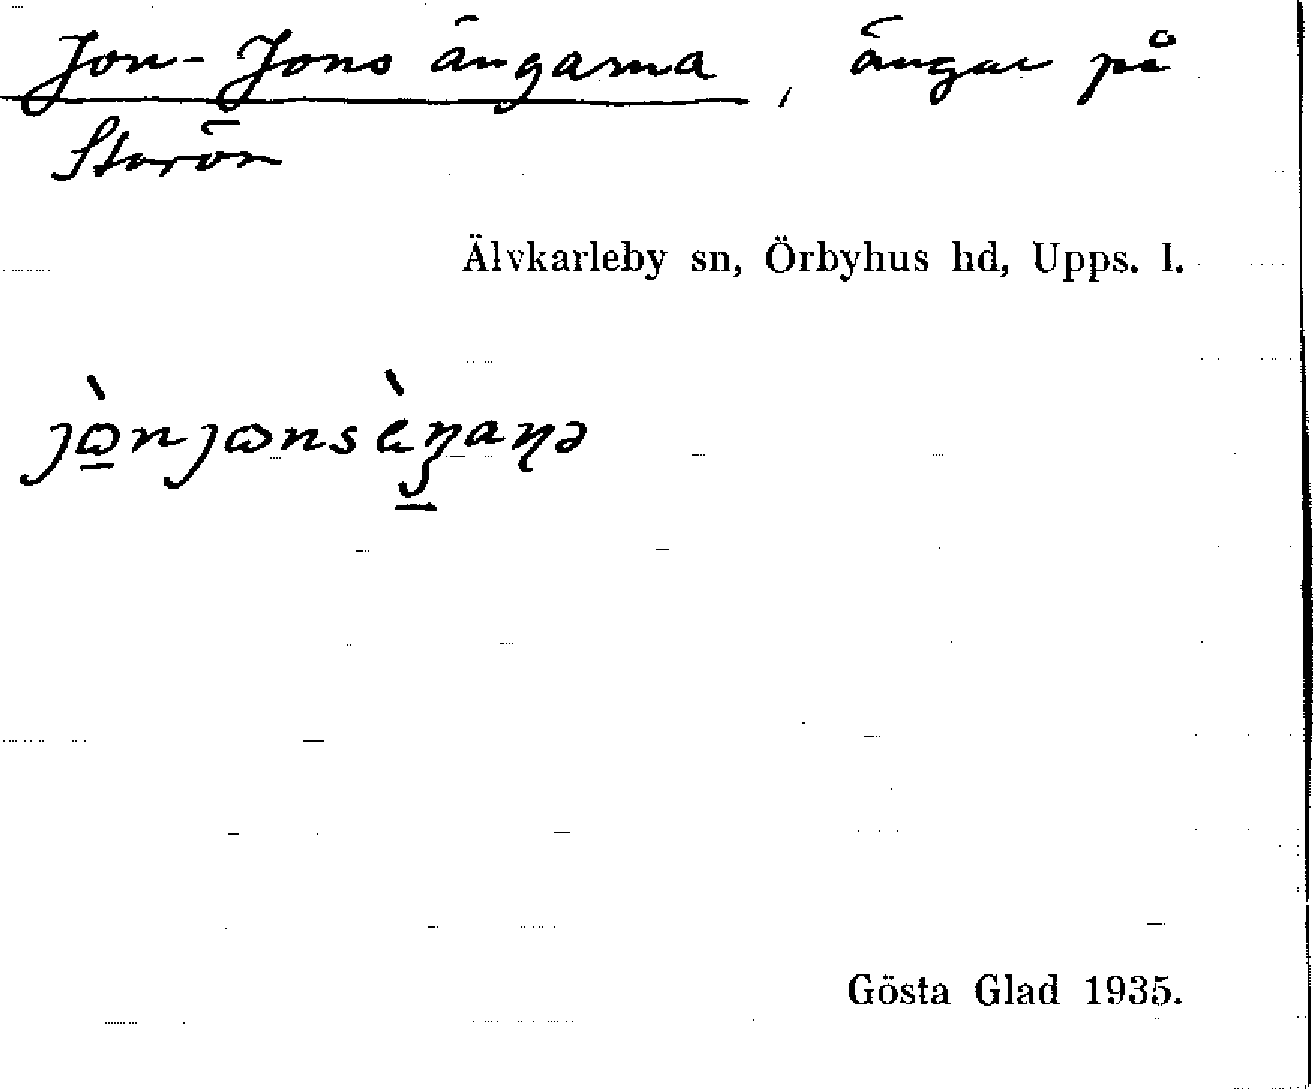 Jon-Jons ängarna, ängar på
Storön
Älvkarleby sn, Örbyhus hd, Upps. l.
jɷ̠̀njɷnsὲŋ̠aɳə
Gösta Glad 1935.